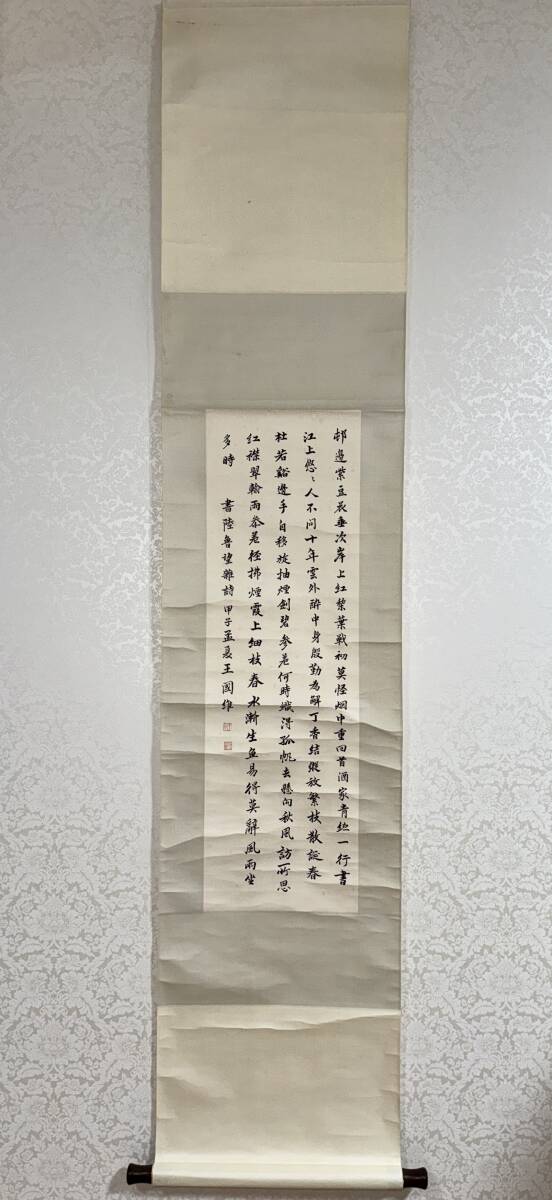 邨邊紫豆花垂次岸上紅梨葉戰初莫怪烟中重回首酒家青紵一行書
江上悠〻人不問十年雲外醉中身殷勤為解丁香結縱放繁枝散誕春
杜若谿邊手自移旋抽煙劍碧參差何時織得孤帆去懸向秋風訪所思
紅襟翠翰兩參差徑拂煙霞上細枝春水漸生魚易得莫辭風雨坐
多時　書陸魯望雜詩　甲子孟夏王國維